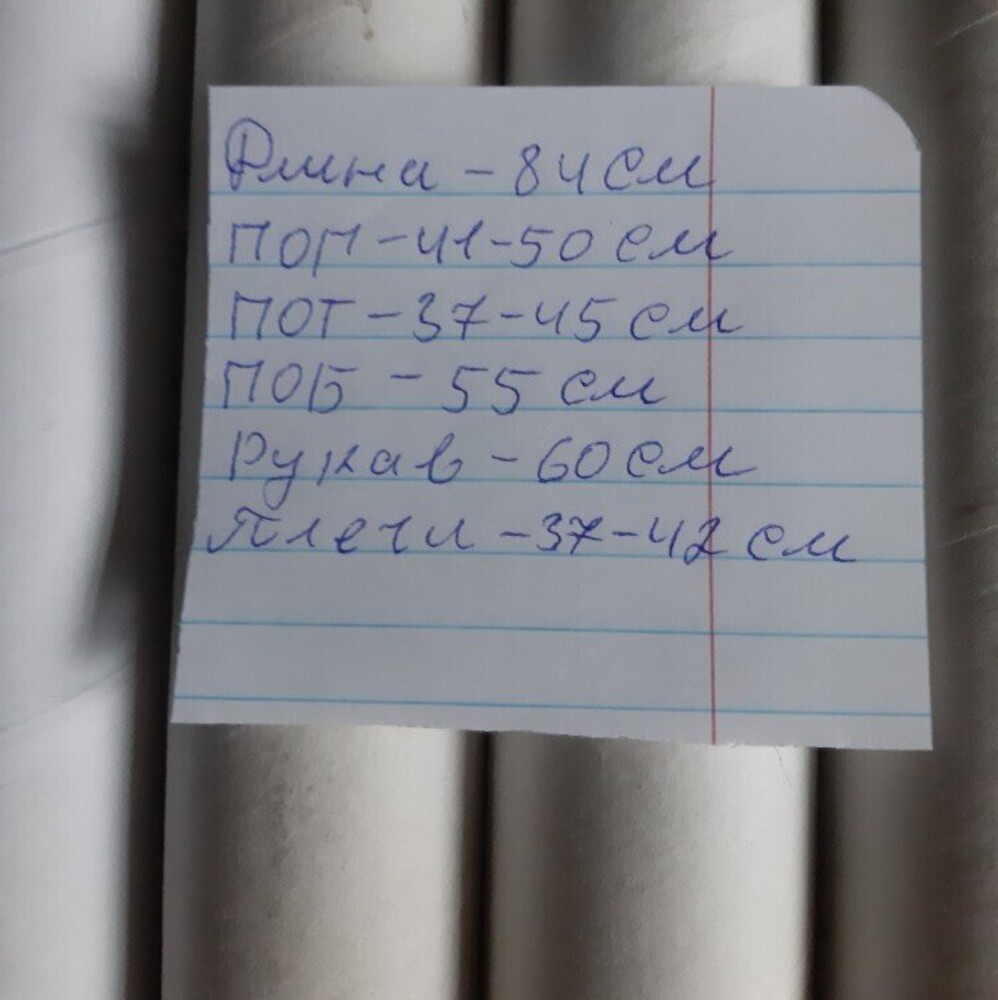 Длина - 84 см
ПОГ - 41-50 см
ПОТ - 37-45 см
ПОБ - 55 см
Рукав - 60 см
Плечи - 37-42 см